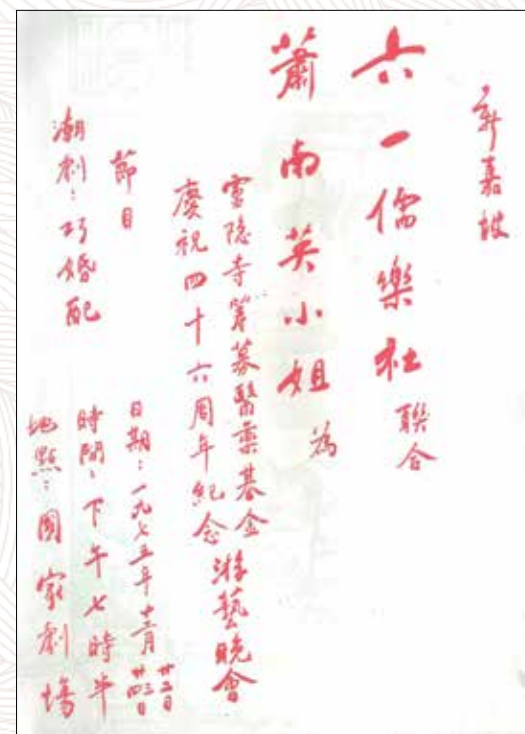 新嘉坡
六一儒樂社聯合
蕭南英小姐為
靈隐寺籌募醫藥基金
慶祝四十六周年紀念游藝晚會
節目
潮劇：巧婚配
日期：一九七五年十二月廿二日廿三日廿四日
時間：下午七時半
地點：國家劇場